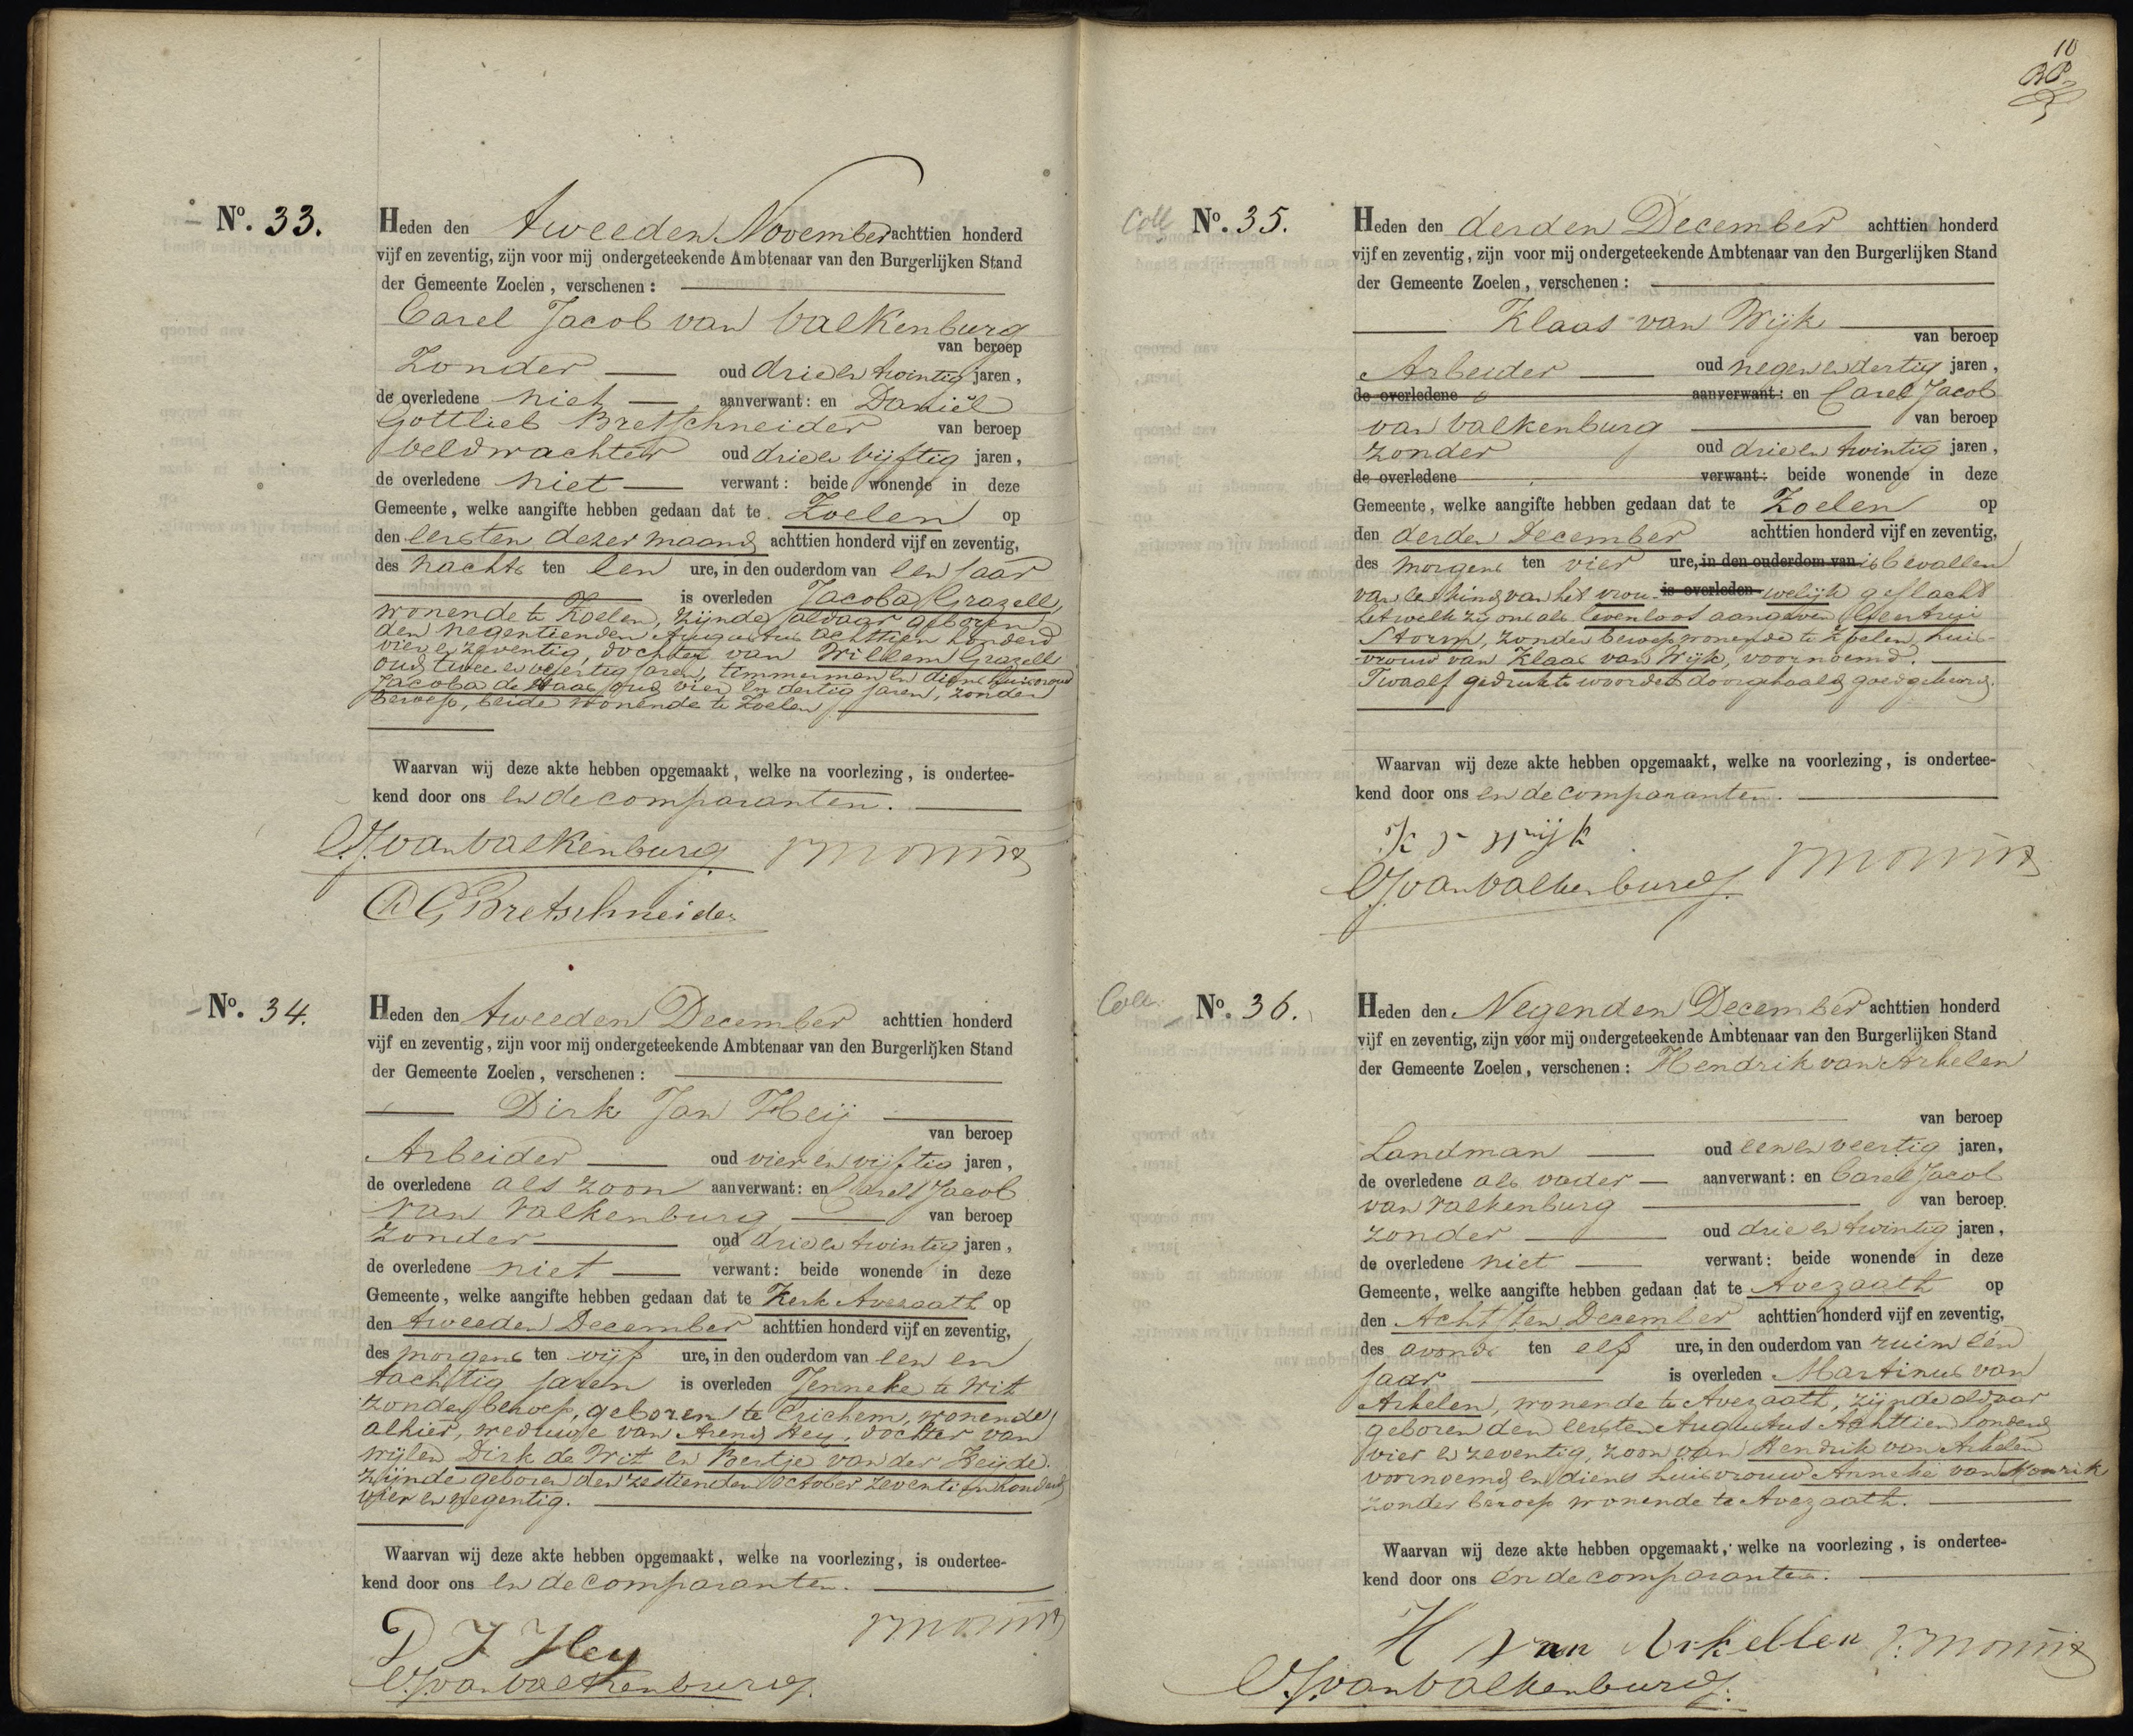 10
No. 33.
Heden den tweeden November achttien honderd
vijf en zeventig, zijn voor mij ondergeteekende Ambtenaar van den Burgerlijken Stand
der Gemeente Zoelen, verschenen:
Carel Jacob van Valkenburg
van beroep
Zonder oud drie en twintig jaren,
de overledene niet aanverwant: en Daniël
Gottlieb Bretschneider van beroep
veldwachter oud drie en vijftig jaren,
de overledene niet verwant: beide wonende in deze
Gemeente, welke aangifte hebben gedaan dat te Zoelen op
den eersten dezer maand achttien honderd vijf en zeventig,
des nachts ten een ure, in den ouderdom van een jaar
is overleden Jacoba Grazell,
wonende te Zoelen, zijnde aldaar geboren
den negentienden Augustus achttien honderd
vier en zeventig, dochter van Willem Grazell
oud twee en veertig jaren, timmerman en diens huisvrouw
Jacoba de Haas oud vier en dertig jaren, zonder
beroep, beide wonende te Zoelen
Waarvan wij deze akte hebben opgemaakt, welke na voorlezing, is ondertee-
kend door ons en de comparanten.
CJ van Valkenburg
DG Bretschneider
No. 34.
Heden den tweeden December achttien honderd
vijf en zeventig, zijn voor mij ondergeteekende Ambtenaar van den Burgerlijken Stand
der Gemeente Zoelen, verschenen:
Dirk Jan Heij
van beroep
Arbeider oud vier en vijftig jaren,
de overledene als zoon aanverwant: en Carel Jacob
van Valkenburg van beroep
zonder oud drie en twintig jaren,
de overledene niet verwant: beide wonende in deze
Gemeente, welke aangifte hebben gedaan dat te Kerk Avezaath op
den tweeden December achttien honderd vijf en zeventig,
des morgens ten vijf ure, in den ouderdom van een en
tachtig jaren is overleden Jenneke de Wit
zonder beroep, geboren te Erichem, wonende
alhier, weduwe van Arend Hey, dochter van
wijlen Dirk de Wit en Peertje van der Heijde.
zijnde geboren den zestienden October zeventien honderd
vier en negentig.
Waarvan wij deze akte hebben opgemaakt, welke na voorlezing, is ondertee-
kend door ons en de comparanten.
D J Hey
CJ van Valkenburg
Coll No. 35.
Heden den derden December achttien honderd
vijf en zeventig, zijn voor mij ondergeteekende Ambtenaar van den Burgerlijken Stand
der Gemeente Zoelen, verschenen:
Klaas van Wijk
van beroep
Arbeider oud negen en dertig jaren,
de overledene aanverwant: en Carel Jacob
van Valkenburg van beroep
zonder oud drie en twintig jaren,
de overledene verwant: beide wonende in deze
Gemeente, welke aangifte hebben gedaan dat te Zoelen op
den derden December achttien honderd vijf en zeventig,
des morgens ten vier ure, in den ouderdom van is bevallen
van een kind van het vrou- is overleden welijk geslacht
hetwelk zij ons als levenloos aangeven Geertrui
Storm, zonder beroep wonende te Zoelen, huis-
vrouw van Klaas van Wijk, voornoemd.
Twaalf gedrukte woorden doorgehaald goedgekeurd.
Waarvan wij deze akte hebben opgemaakt, welke na voorlezing, is ondertee-
kend door ons en de comparanten.
K v wijk
CJ van Valkenburg
Coll. No. 36.
Heden den Negenden December achttien honderd
vijf en zeventig, zijn voor mij ondergeteekende Ambtenaar van den Burgerlijken Stand
der Gemeente Zoelen, verschenen: Hendrik van Arkelen
van beroep
Landman oud een en veertig jaren,
de overledene als vader aanverwant: en Carel Jacob
van Valkenburg van beroep
zonder oud drie en twintig jaren,
de overledene niet verwant: beide wonende in deze
Gemeente, welke aangifte hebben gedaan dat te Avezaath op
den Achtsten December achttien honderd vijf en zeventig,
des avonds ten elf ure, in den ouderdom van ruim één
jaar is overleden Martinus van
Arkelen, wonende te Avezaath, zijnde aldaar
geboren den eersten Augustus Achttien honderd
vier en zeventig, zoon van Hendrik van Arkelen
voornoemd en diens huisvrouw Anneke van Mourik
zonder beroep wonende te Avezaath.
Waarvan wij deze akte hebben opgemaakt, welke na voorlezing, is ondertee-
kend door ons en de comparanten.
H van Arkellen
CJ van Valkenburg